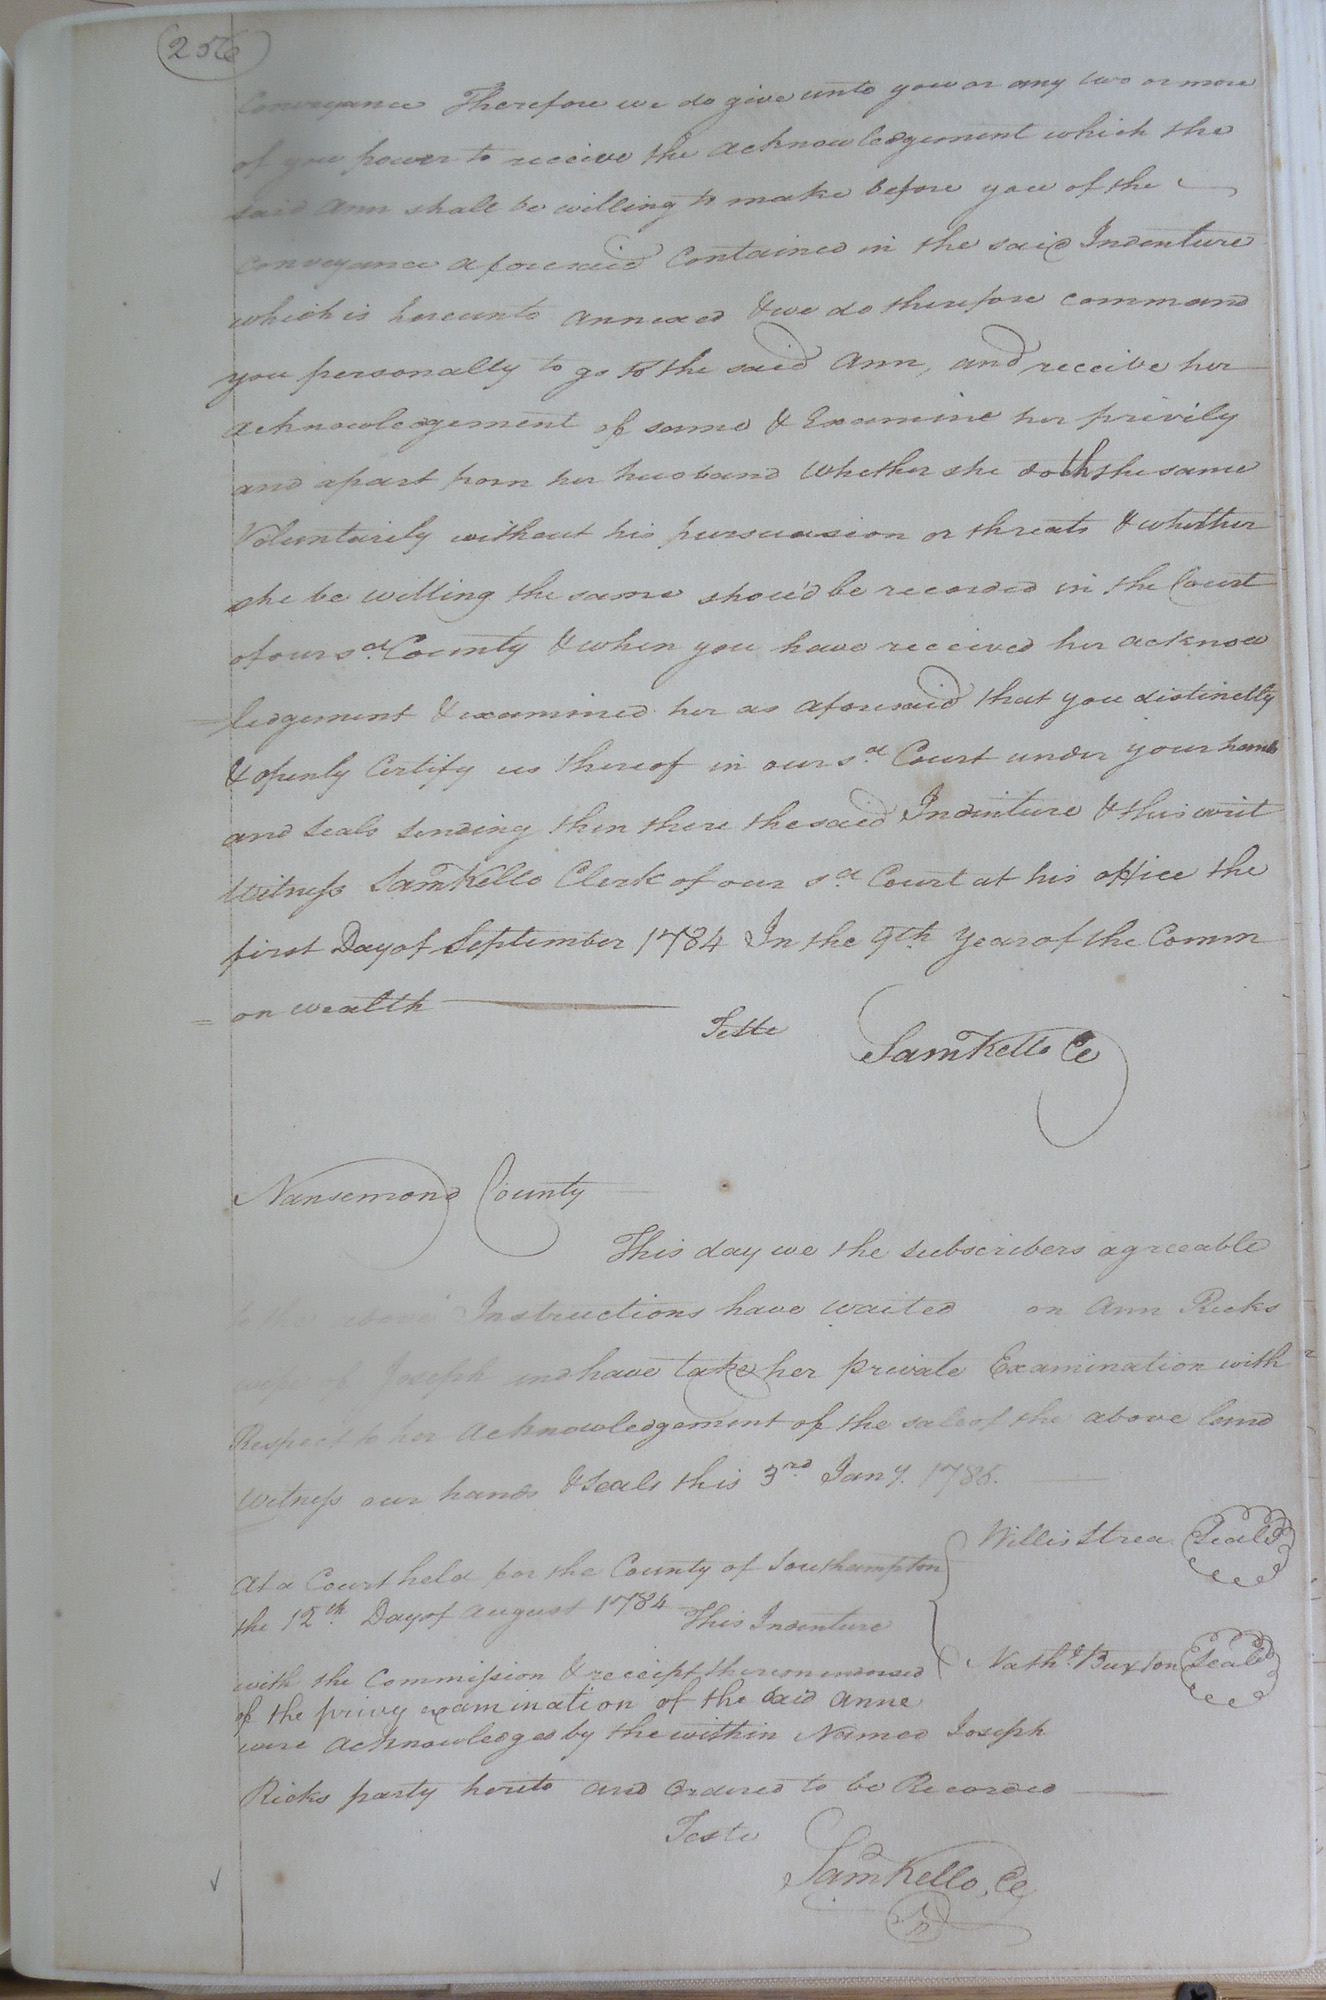 256
Conveyance Therefore we do give unto you or any two or more
of you power to receive the acknowledgement which the
said Ann shall be willing to make before you of the
conveyance aforesaid Contained in the said Indenture
which is hereunto annexed & we do therefore command
you personally to go to the said Ann, and receive her
acknowledgement of same & Examine her privily
and apart from her husband Whether she doth the same
Voluntarily without his pursuasion or threats & whether
she be willing the same shou'd be recorded in the Court
of our sd. County & when you have received her acknow
=ledgement & examined her as aforesaid that you distinctly
& openly Certify us thereof in our sd. Court under your hands
and seals sending then there the said Indenture & this writ
Witness Sam Kello Clerk of our sd Court at his office the
first Day of September 1784 In the 9th. Year of the Comm
=on wealth
Teste Sam Kello Cc
Nansemond County
This day we the subscribers agreeable
to the above Instructions have waited on Ann Ricks
wife of Joseph and have take her private Examination with
Respect to her Acknowledgement of the sale of the above land
Witness our hands & Seals this 3rd. Jany. 1785.
Willis Strea Seal
At a Court held for the County of Southampton
the 12th. Day of August 1784 This Indenture
with the Commission & receipt thereon endorsed
Nathl. Buxton Seal
of the privy examination of the said Anne
were acknowledged by the within Named Joseph
Ricks party hereto and Ordered to be Recorded
Teste
Sam Kello, Cc